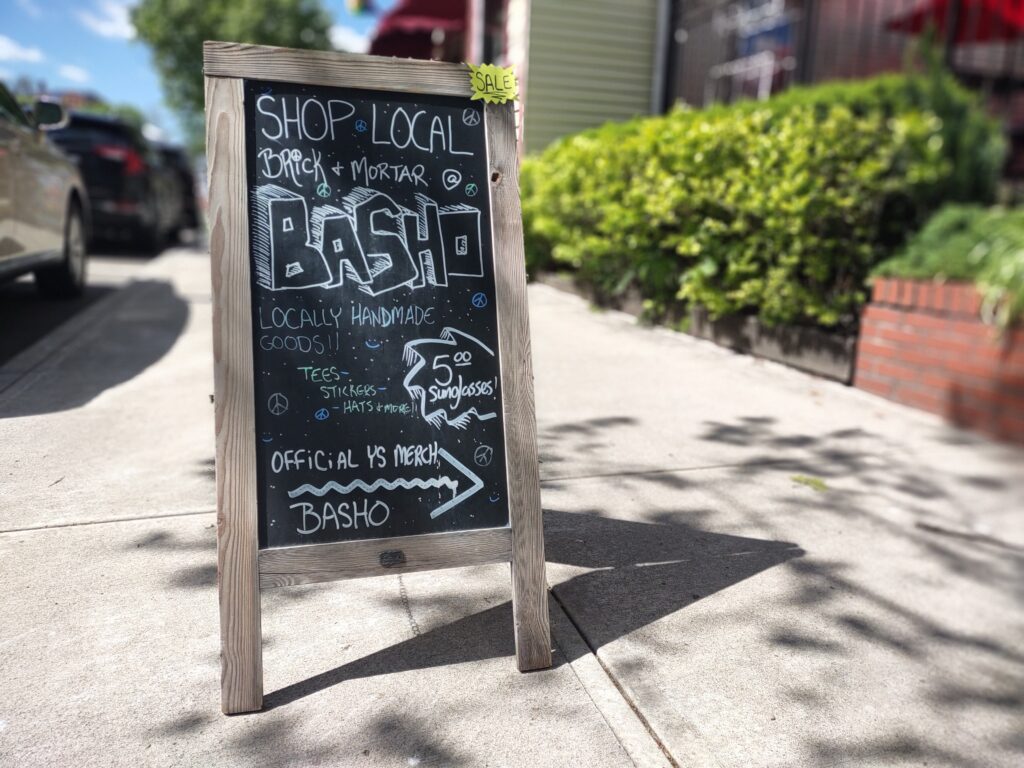 SALE
SHOP LOCAL
BRICK + MORTAR @
BASHO
LOCALLY HANDMADE
GOODS!!
TEES-
STICKERS-
-HATS + MORE!!
5.00
sunglasses!
OFFICIAL YS MERCH,
BASHO